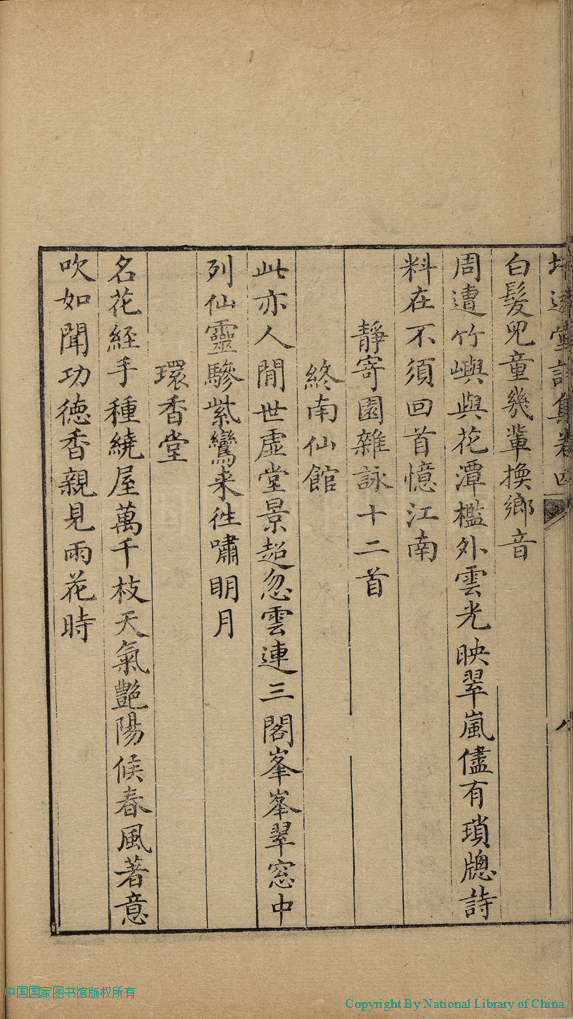 堂詩集卷四
八
白髮兒童幾輩換鄉音
周遭竹嶼與花潭檻外雲光映翠嵐儘有瑣牕詩
料在不須回首憶江南
靜寄園雜詠十二首
終南仙館
此亦人間世虛堂景超忽雲連三閣峯峯翠窓中
列仙靈驂紫鸞来徃嘯眀月
環香堂
名花経手種繞屋萬千枝天氣艶陽候春風著意
吹如聞功德香親見雨花時
中国国家图书馆版权所有
Copyright By National Library of China